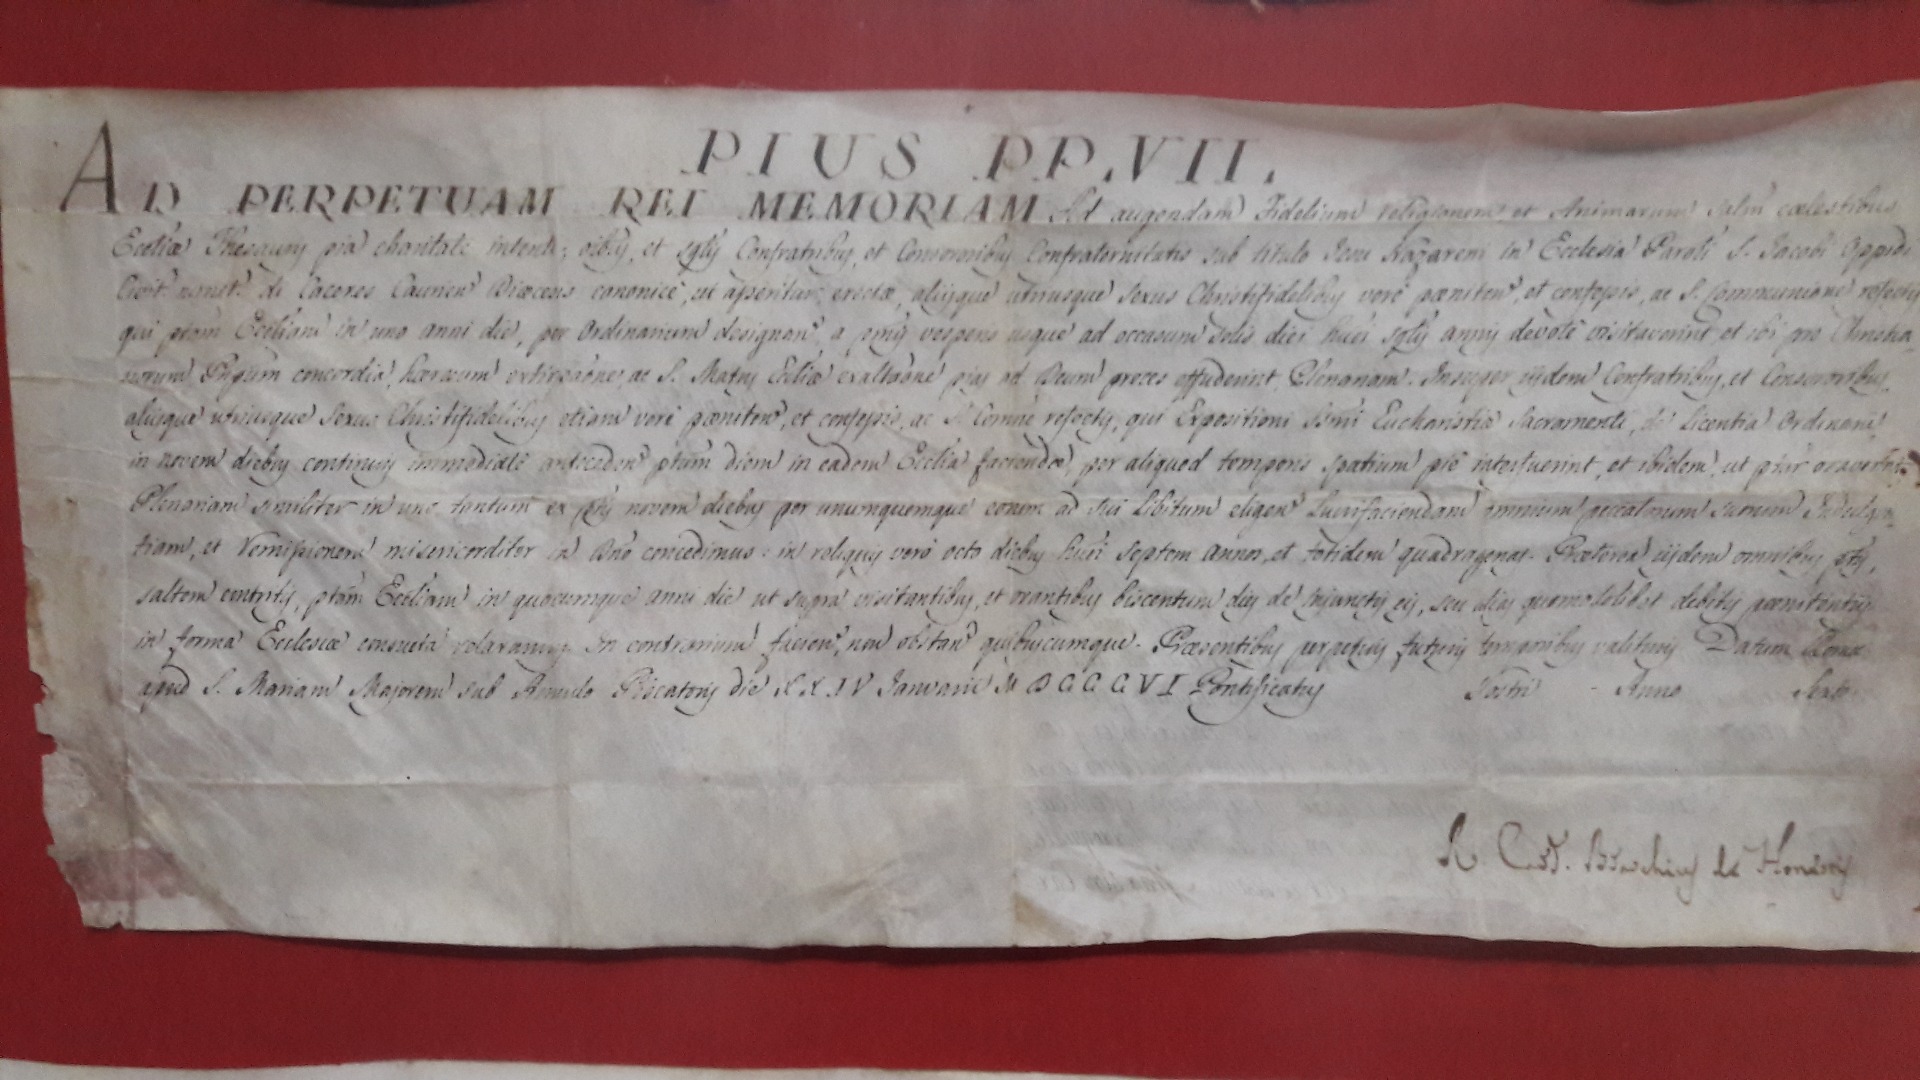 PIUS PP. VII.
AD PERPETUAM REI MEMORIAM Ad augendam Fidelium religionem et Animarum salm cœlestibus
Eccliæ Thesauris pia charitate intenti, oibus, et sglis Confratribus, et Consororibus Confraternitatis sub titulo Jesu Nazareni in Ecclesia Paroli S. Jacobi Oppidi
di Caceres Caurien Diœcesis canonicè, ut asseritur, erectæ, aliisque utriusque sexus Christifidelibus verè pœniten', et confessis, ac S. Communione refectis
qui ptam Eccliam in uno anni die, per Ordinarium designan', a pmis vesperis usque ad occasum solis diei hui sglis annis devotè visitaverint, et ibi pro Christia-
norum Pngum concordia, hæresum extirpaone, ac S. Matris Ecclie exaltaone pias ad Deum preces effuderint, Plenariam. Insuper iisdem Confratribus, et Consororibus,
aliisque utriusque sexus Christifidelibus etiam verè pœniten', et confessis, ac S. Comne refectis, qui Expositioni Ssmi Eucharistiæ Sacramenti, de licentia Ordinarii
in novem diebus continuis immediatè anteceden' ptum diem in eadem Ecclia faciendæ, per aliquod temporis spatium piè interfuerint, et ibidem, ut ptur oraverint,
Plenariam similiter in uno tantum ex ptis novem diebus per unumquemque eorum ad sui libitum eligen' lucrifaciendam omnium peccatorum suorum Indulgen-
tiam, et remissionem misericorditer in Dno concedimus: in reliquis verò octo diebus hui septem annos, et totidem quadragenas. Præterea iisdem omnibus ptis,
saltem contritis, ptam Eccliam in quocumque anni die ut supra visitantibus, et orantibus biscentum dies de injunctis eis, seu alias quomodolibet debitis pœnitentiis
in forma Ecclesiæ consueta relaxamus. In contrarium facien', non obstan' quibuscumque. Præsentibus perpetuis futuris temporibus valituris. Datum Romæ
apud S. Mariam Majorem sub Annulo Piscatoris die XXIV Januarii MDCCCVI Pontificatus Nostri Anno Sexto
R. Card. Braschius de Honestis